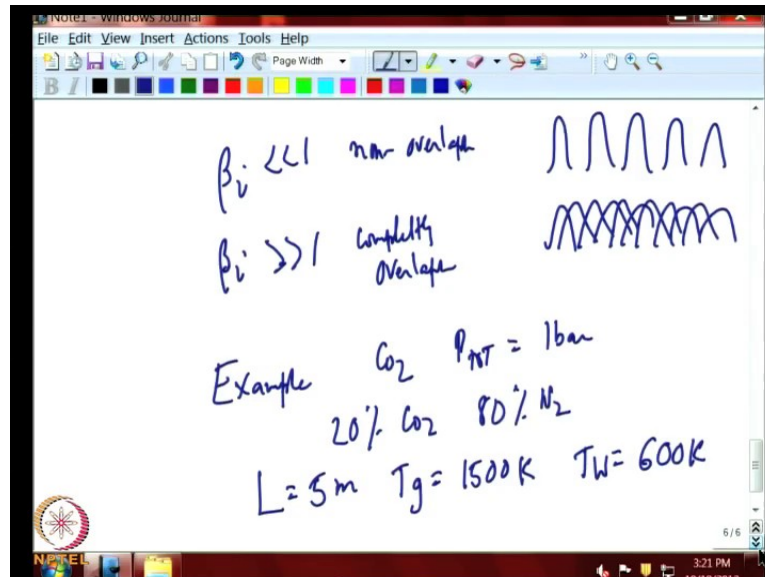 Note1 - Windows Journal
File Edit View Insert Actions Tools Help
Page Width
B I
βi <<1 non overlap
βi >>1 completly
overlap
Example CO2 PTOT = 1bar
20% CO2 80% N2
L = 5m Tg = 1500K TW = 600K
6/6
NPTEL
3:21 PM